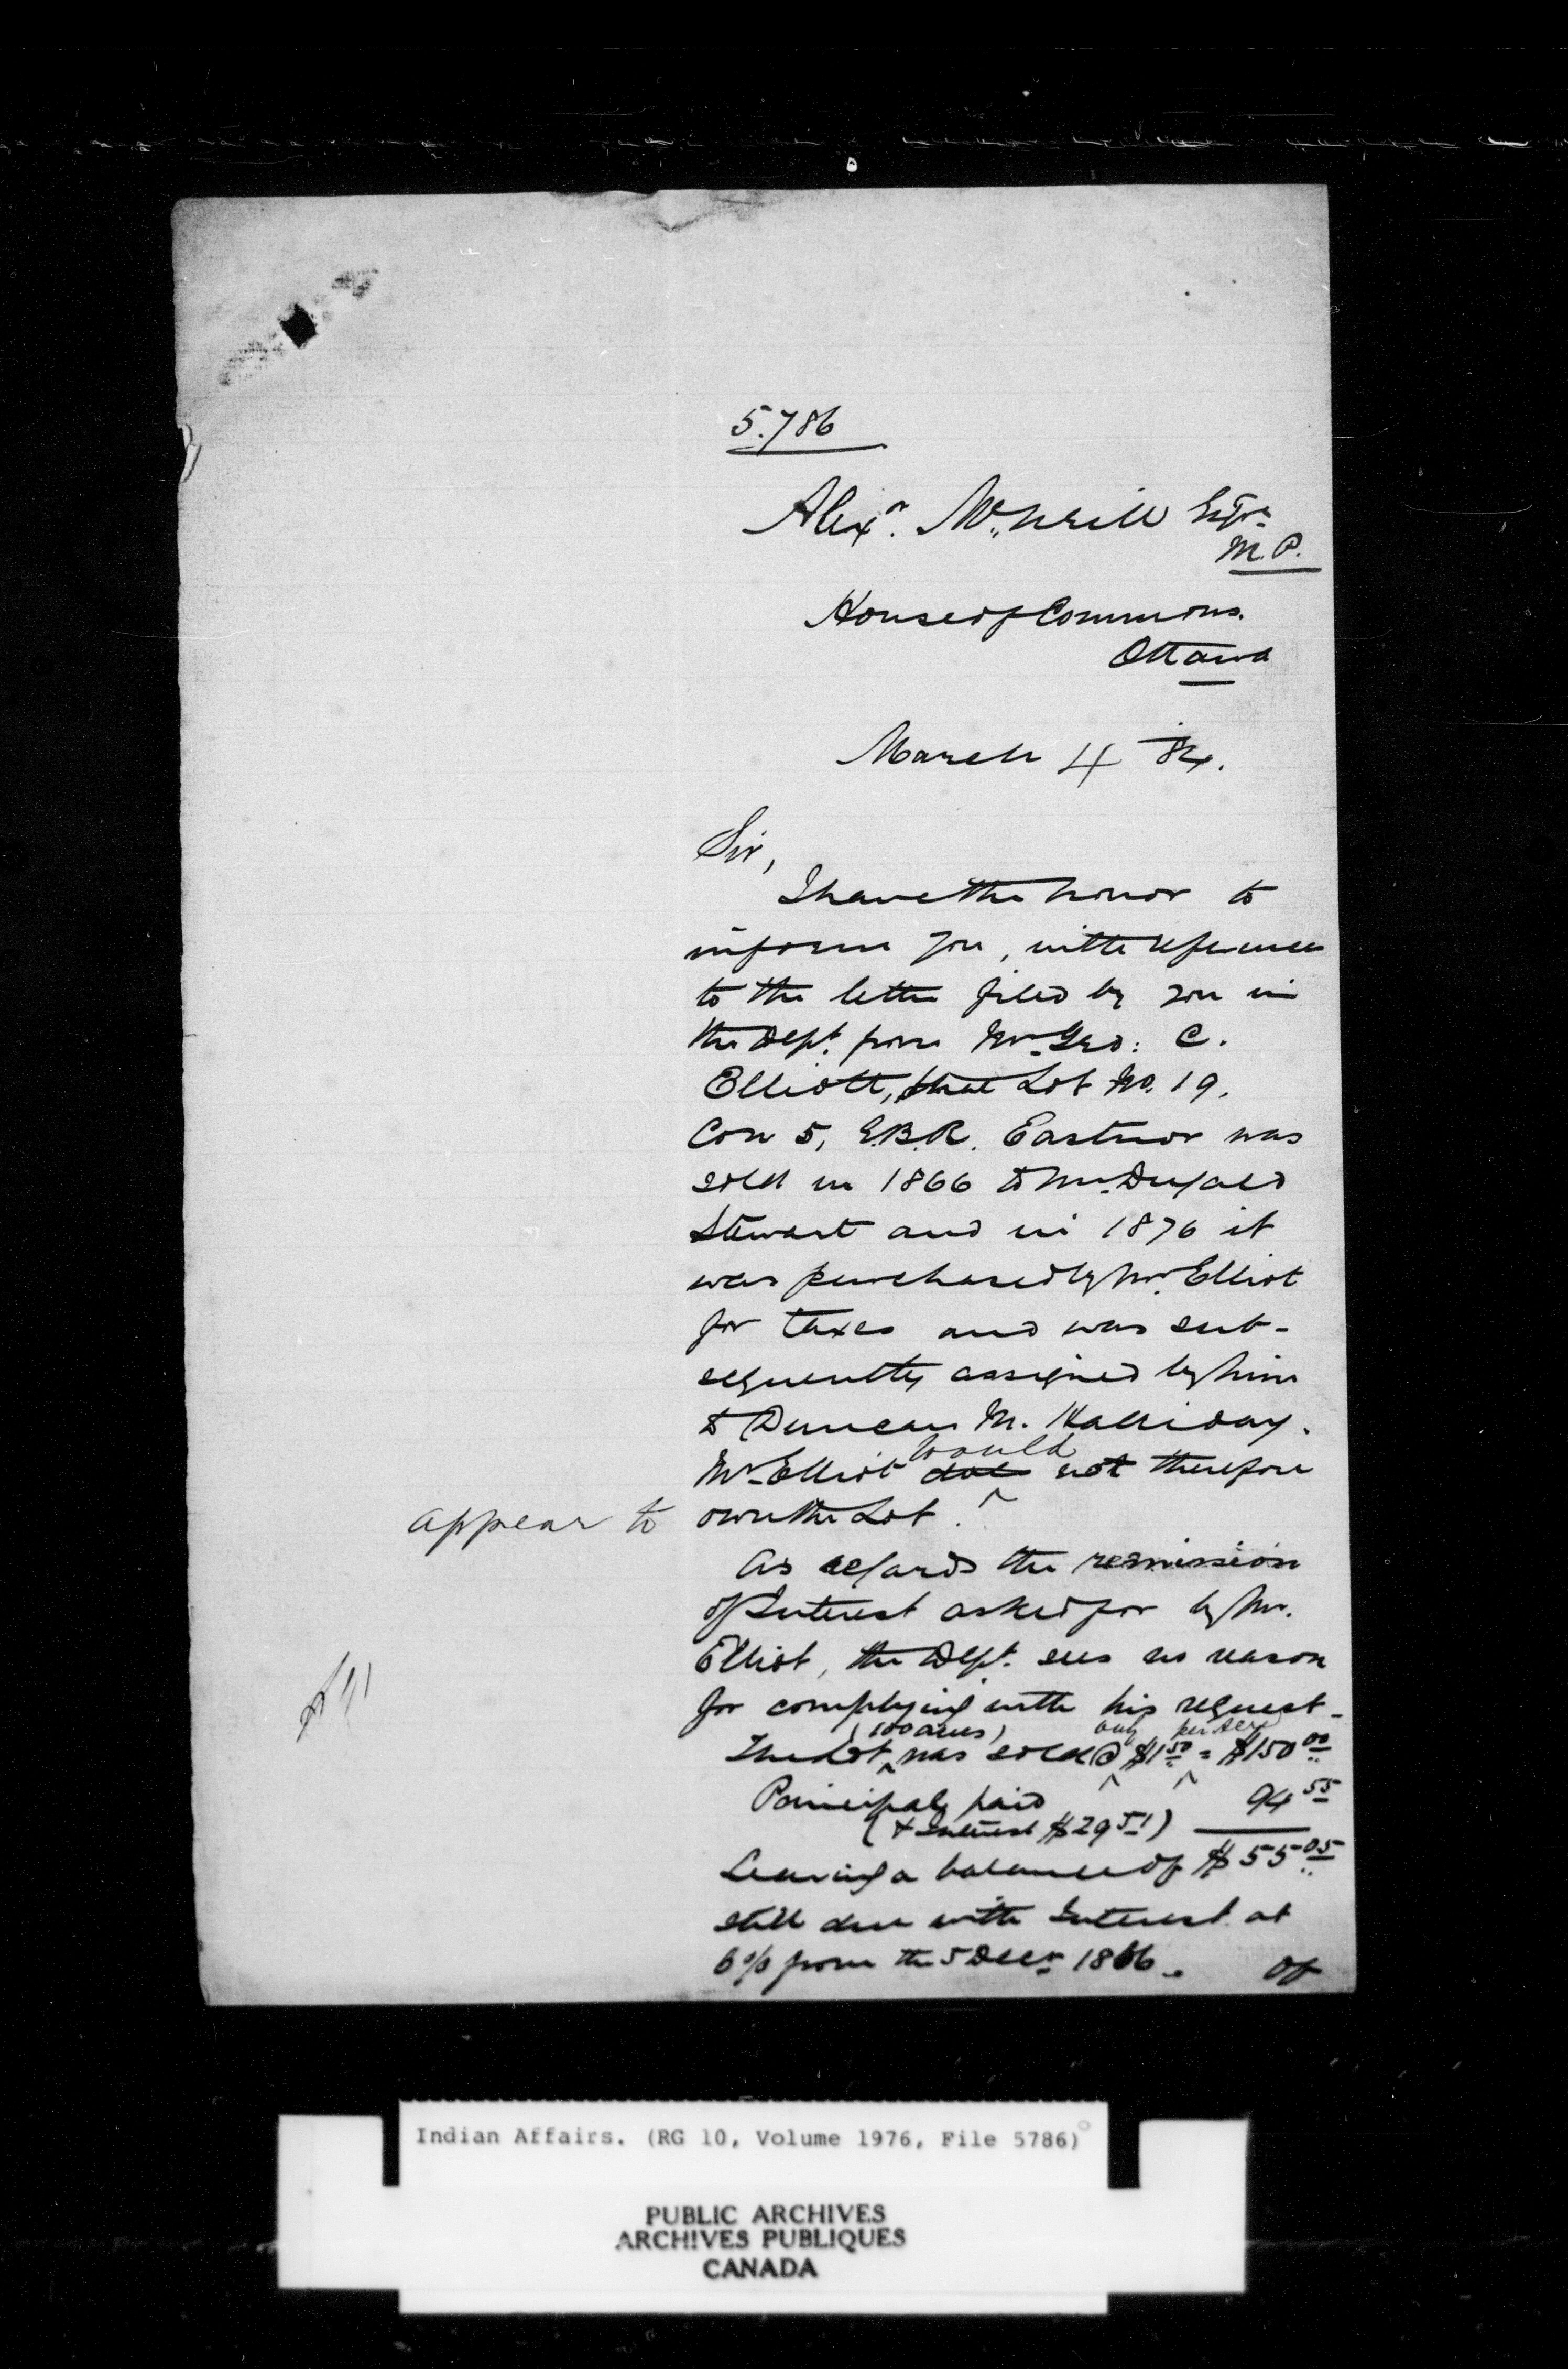 5.786
Alexr. McNeill Esqre
M.P.
House of Commons.
Ottawa
March 4 84.
Sir,
I have the honor to
inform you, with reference
to the letter filed by you in
the Dept. from Mr. Geo: C.
Elliott, that Lot No. 19,
Con 5, E.B.R. Eastnor was
sold in 1866 to Mr. Dugald
Stewart and in 1876 it
was purchased by Mr. Elliot
for taxes and was sub-
sequently assigned by him
to Duncan M. Halliday.
would
Mr. Elliot does not therefore
appear to own the Lot.
As regards the remission
of Interest asked for by Mr.
Elliot, the Dept. sees no reason
for complying with his request.
(100 acres) only per acre
The Lot was sold @ $1.50 = $150.00
Principal paid 94.55
(+ Interest $29.51)
Leaving a balance of $55.05
still due with Interest at
6% from the 5 Decr. 1866. Of
Indian Affairs. (RG 10, Volume 1976, File 5786)
PUBLIC ARCHIVES
ARCHIVES PUBLIQUES
CANADA